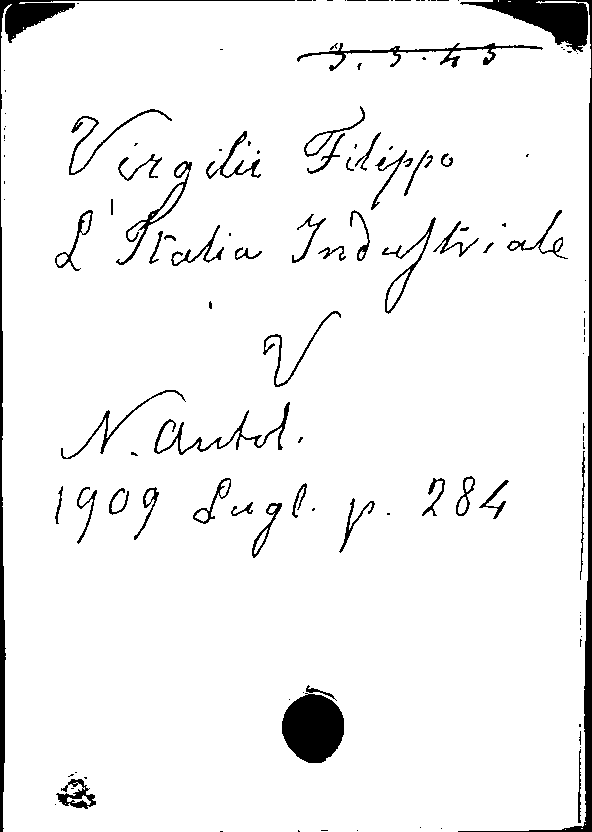 3.3.43
Virgilii Filippo
L'Italia Industriale
V
N. Antol.
1909 Lugl. p. 284